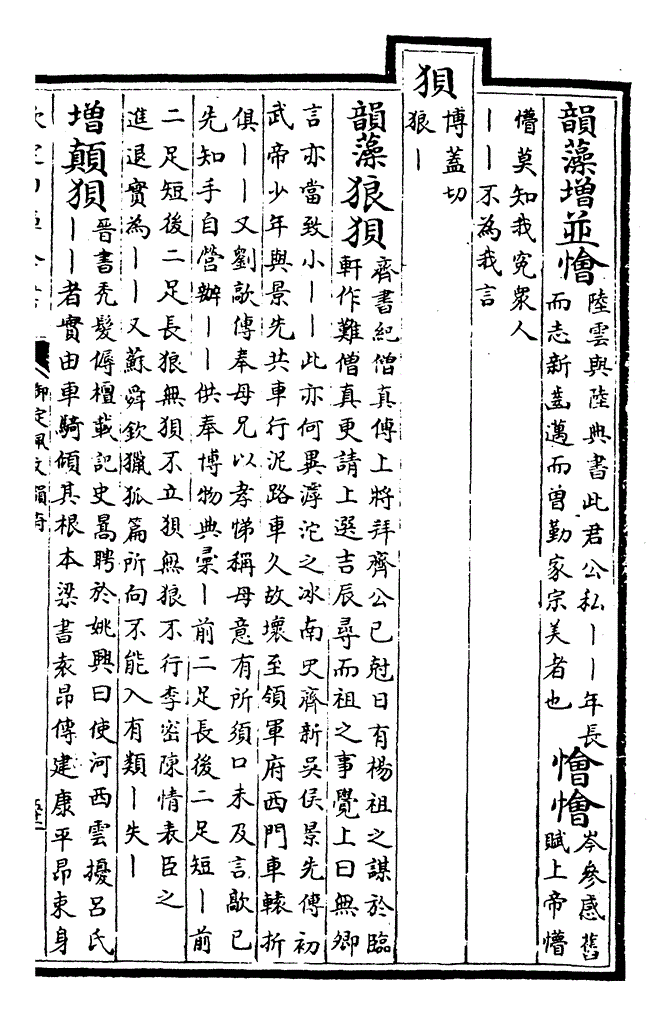 韻藻增並懀
陸雲與陸典書此君公私丨丨年長
而志新齒邁而曽勤家宗美者也
懀懀
岑參感舊
賦上帝懵
懵莫知我冤衆人
丨丨不為我言
狽
博蓋切
狼丨
韻藻狼狽
齊書紀僧真傅上將拜齊公已尅日有楊祖之謀於臨
軒作難僧真更請上選吉辰尋而祖之事覺上曰無卿
言亦當致小丨丨此亦何異滹沱之冰南史齊新吳侯景先傳初
武帝少年與景先共車行泥路車久故壞至領軍府西門車轅折
俱丨丨又劉歊傳奉母兄以孝悌稱母意有所須口未及言歊已
先知手自營辦丨丨供奉博物典彚丨前二足長後二足短丨前
二足短後二足長狼無狽不立狽無狼不行李密陳情表臣之
進退實為丨丨又蘇舜欽獵狐篇所向不能入有類丨失丨
增顛狽
晉書禿髮傉檀載記史暠聘於姚興曰使河西雲擾呂氏
丨丨者實由車騎傾其根本梁書袁昂傳建康平昂束身
御定佩文韻府